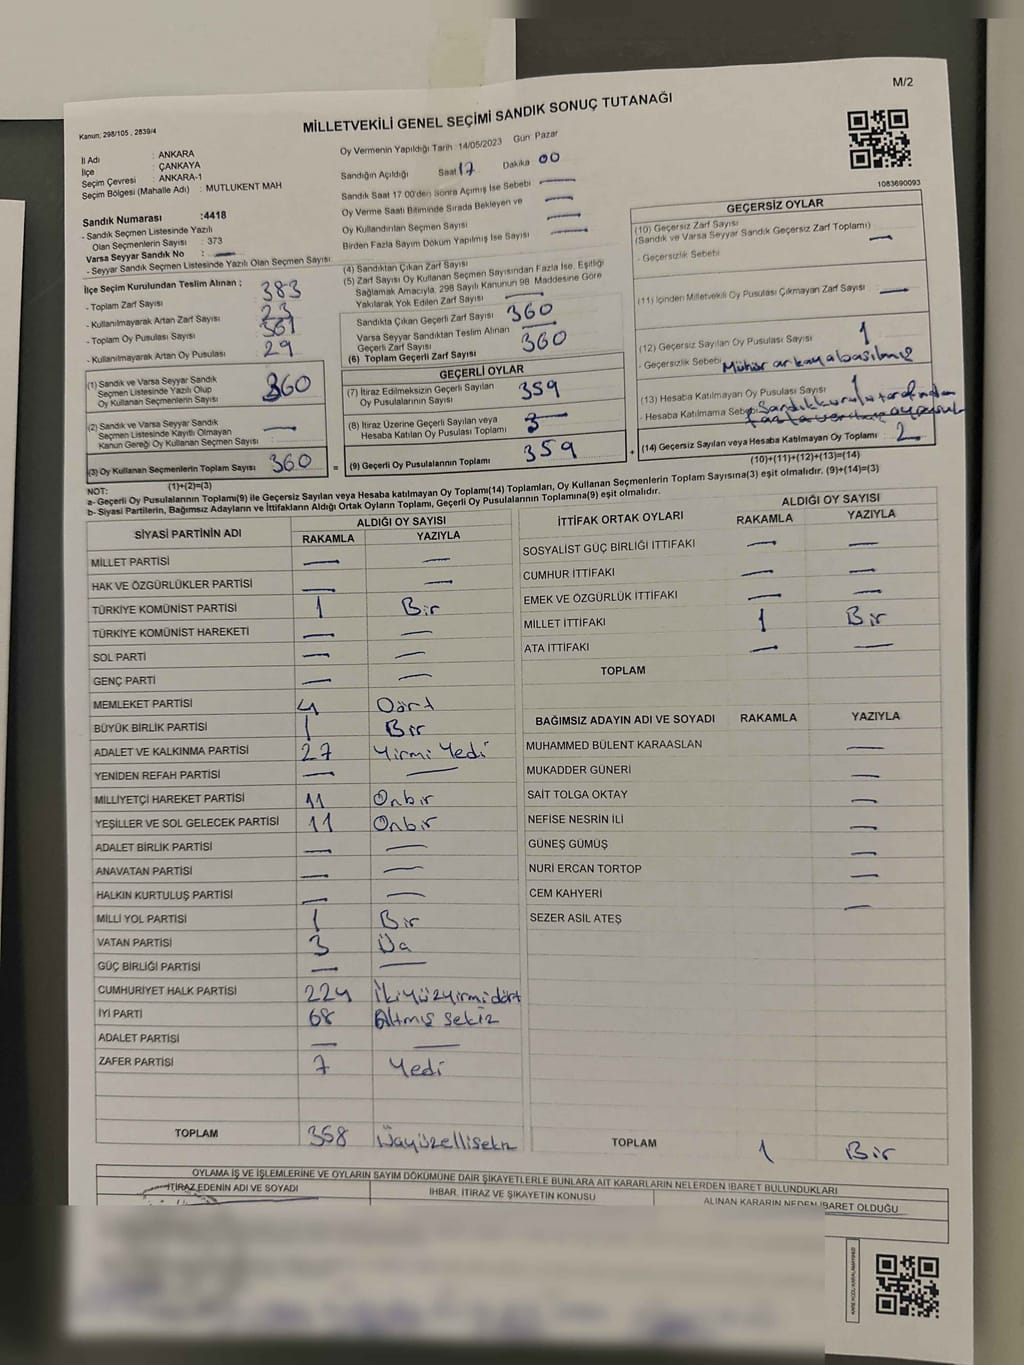 M/2
Kanun; 298/105 , 2839/4
MİLLETVEKİLİ GENEL SEÇİMİ SANDIK SONUÇ TUTANAĞI
İl Adı : ANKARA
İlçe : ÇANKAYA
Seçim Çevresi : ANKARA-1
Seçim Bölgesi (Mahalle Adı) : MUTLUKENT MAH
Sandık Numarası :4418
- Sandık Seçmen Listesinde Yazılı
Olan Seçmenlerin Sayısı : 373
Varsa Seyyar Sandık No : —
- Seyyar Sandık Seçmen Listesinde Yazılı Olan Seçmen Sayısı:
Oy Vermenin Yapıldığı Tarih :14/05/2023 Gün: Pazar
Sandığın Açıldığı Saat 17 Dakika 00
Sandık Saat 17.00'den Sonra Açılmış İse Sebebi —
Oy Verme Saati Bitiminde Sırada Bekleyen ve —
Oy Kullandırılan Seçmen Sayısı —
Birden Fazla Sayım Döküm Yapılmış İse Sayısı —
1083690093
İlçe Seçim Kurulundan Teslim Alınan ;
- Toplam Zarf Sayısı : 383
- Kullanılmayarak Artan Zarf Sayısı : 23
- Toplam Oy Pusulası Sayısı :
- Kullanılmayarak Artan Oy Pusulası : 29
(1) Sandık ve Varsa Seyyar Sandık
Seçmen Listesinde Yazılı Olup
Oy Kullanan Seçmenlerin Sayısı : 360
(2) Sandık ve Varsa Seyyar Sandık
Seçmen Listesinde Kayıtlı Olmayan
Kanun Gereği Oy Kullanan Seçmen Sayısı : —
(3) Oy Kullanan Seçmenlerin Toplam Sayısı : 360
(1)+(2)=(3)
(4) Sandıktan Çıkan Zarf Sayısı
(5) Zarf Sayısı Oy Kullanan Seçmen Sayısından Fazla İse, Eşitliği
Sağlamak Amacıyla, 298 Sayılı Kanunun 98. Maddesine Göre
Yakılarak Yok Edilen Zarf Sayısı —
Sandıkta Çıkan Geçerli Zarf Sayısı 360
Varsa Seyyar Sandıktan Teslim Alınan
Geçerli Zarf Sayısı —
(6) Toplam Geçerli Zarf Sayısı 360
GEÇERLİ OYLAR
(7) İtiraz Edilmeksizin Geçerli Sayılan
Oy Pusulalarının Sayısı 359
(8) İtiraz Üzerine Geçerli Sayılan veya
Hesaba Katılan Oy Pusulası Toplamı
= (9) Geçerli Oy Pusulalarının Toplamı 359
GEÇERSİZ OYLAR
(10) Geçersiz Zarf Sayısı
(Sandık ve Varsa Seyyar Sandık Geçersiz Zarf Toplamı) —
- Geçersizlik Sebebi
(11) İçinden Milletvekili Oy Pusulası Çıkmayan Zarf Sayısı —
(12) Geçersiz Sayılan Oy Pusulası Sayısı 1
- Geçersizlik Sebebi Mühür arkaya basılmış
(13) Hesaba Katılmayan Oy Pusulası Sayısı 1
- Hesaba Katılmama Sebebi Sandık kurulu tarafından
fazla verilen oy pusul
+ (14) Geçersiz Sayılan veya Hesaba Katılmayan Oy Toplamı : 2
(10)+(11)+(12)+(13)=(14)
NOT:
a- Geçerli Oy Pusulalarının Toplamı(9) ile Geçersiz Sayılan veya Hesaba katılmayan Oy Toplamı(14) Toplamları, Oy Kullanan Seçmenlerin Toplam Sayısına(3) eşit olmalıdır. (9)+(14)=(3)
b- Siyasi Partilerin, Bağımsız Adayların ve İttifakların Aldığı Ortak Oyların Toplamı, Geçerli Oy Pusulalarının Toplamına(9) eşit olmalıdır.
SİYASİ PARTİNİN ADI ALDIĞI OY SAYISI
RAKAMLA YAZIYLA
MİLLET PARTİSİ — —
HAK VE ÖZGÜRLÜKLER PARTİSİ — —
TÜRKİYE KOMÜNİST PARTİSİ 1 Bir
TÜRKİYE KOMÜNİST HAREKETİ — —
SOL PARTİ — —
GENÇ PARTİ — —
MEMLEKET PARTİSİ 4 Dört
BÜYÜK BİRLİK PARTİSİ 1 Bir
ADALET VE KALKINMA PARTİSİ 27 Yirmi Yedi
YENİDEN REFAH PARTİSİ — —
MİLLİYETÇİ HAREKET PARTİSİ 11 Onbir
YEŞİLLER VE SOL GELECEK PARTİSİ 11 Onbir
ADALET BİRLİK PARTİSİ — —
ANAVATAN PARTİSİ — —
HALKIN KURTULUŞ PARTİSİ — —
MİLLİ YOL PARTİSİ 1 Bir
VATAN PARTİSİ 3 Üç
GÜÇ BİRLİĞİ PARTİSİ — —
CUMHURİYET HALK PARTİSİ 224 İkiyüzyirmidört
İYİ PARTİ 68 Altmış sekiz
ADALET PARTİSİ — —
ZAFER PARTİSİ 7 Yedi
TOPLAM 358 Üçyüzellisekiz
İTTİFAK ORTAK OYLARI ALDIĞI OY SAYISI
RAKAMLA YAZIYLA
SOSYALİST GÜÇ BİRLİĞİ İTTİFAKI — —
CUMHUR İTTİFAKI — —
EMEK VE ÖZGÜRLÜK İTTİFAKI — —
MİLLET İTTİFAKI 1 Bir
ATA İTTİFAKI — —
TOPLAM
BAĞIMSIZ ADAYIN ADI VE SOYADI RAKAMLA YAZIYLA
MUHAMMED BÜLENT KARAASLAN —
MUKADDER GÜNERİ —
SAİT TOLGA OKTAY —
NEFİSE NESRİN İLİ —
GÜNEŞ GÜMÜŞ —
NURİ ERCAN TORTOP —
CEM KAHYERİ —
SEZER ASİL ATEŞ
TOPLAM 1 Bir
OYLAMA İŞ VE İŞLEMLERİNE VE OYLARIN SAYIM DÖKÜMÜNE DAİR ŞİKAYETLERLE BUNLARA AİT KARARLARIN NELERDEN İBARET BULUNDUKLARI
İTİRAZ EDENİN ADI VE SOYADI İHBAR, İTİRAZ VE ŞİKAYETİN KONUSU ALINAN KARARIN NEDEN İBARET OLDUĞU